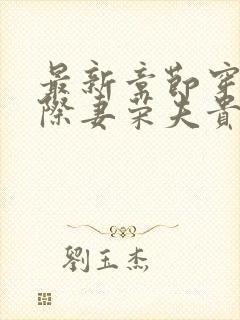 最新章節穿
際妻榮夫貴
劉玉杰